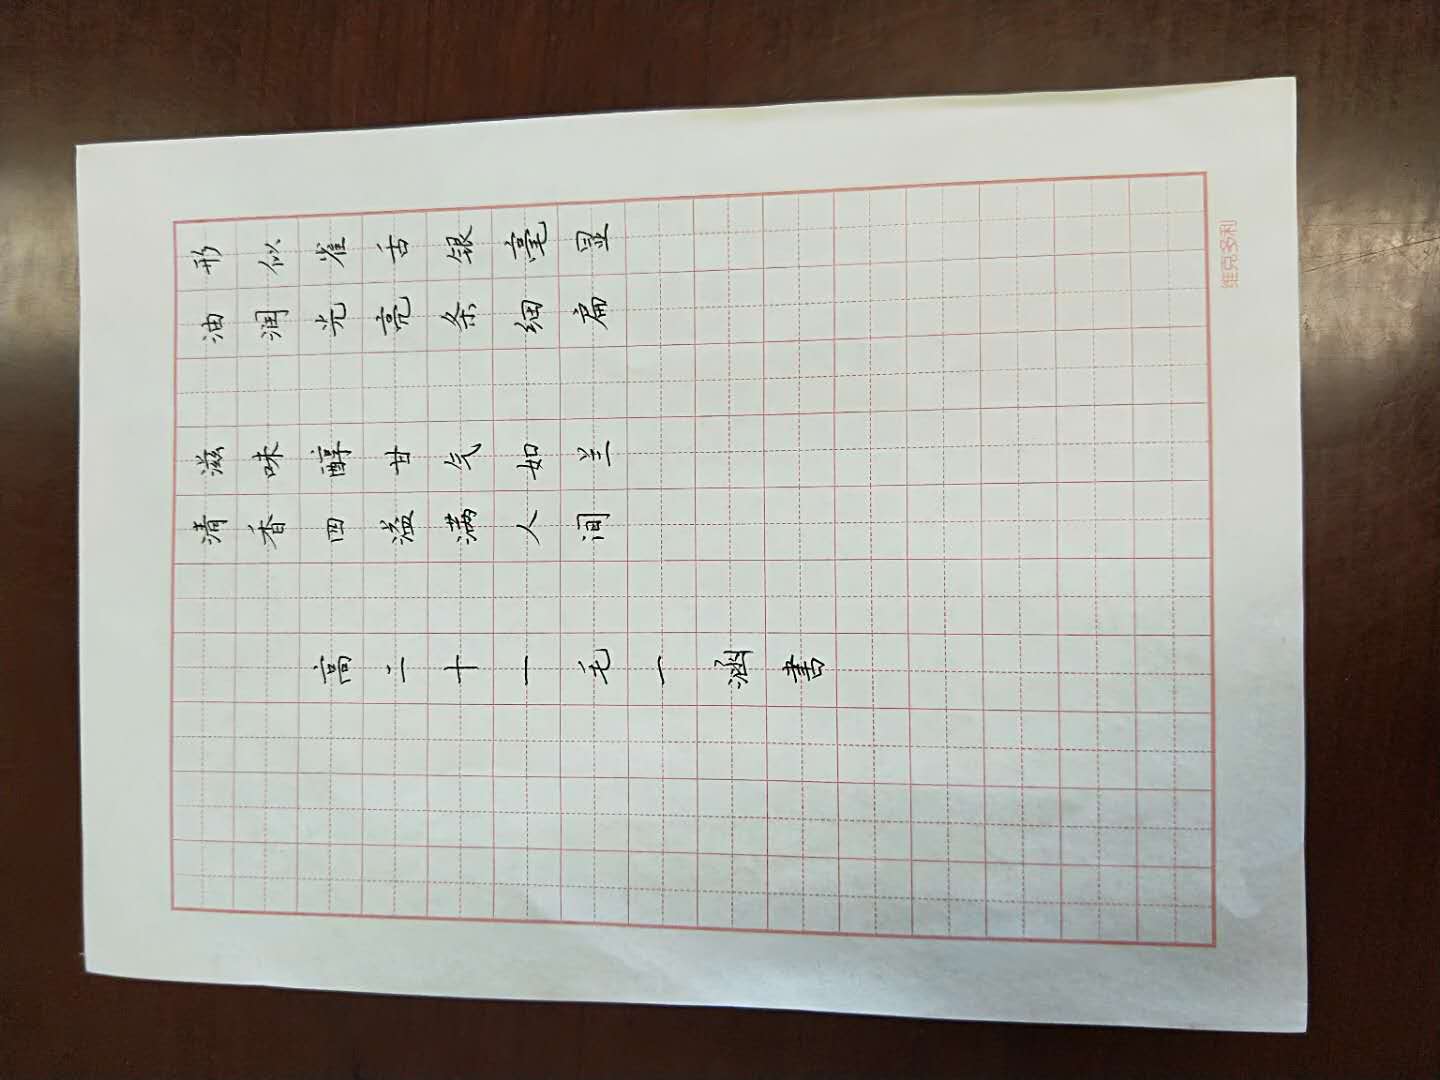 形似雀舌银毫显
油润光亮条细扁
滋味醇甘气如兰
清香四溢满人间
高二十一毛一涵書
维克多利